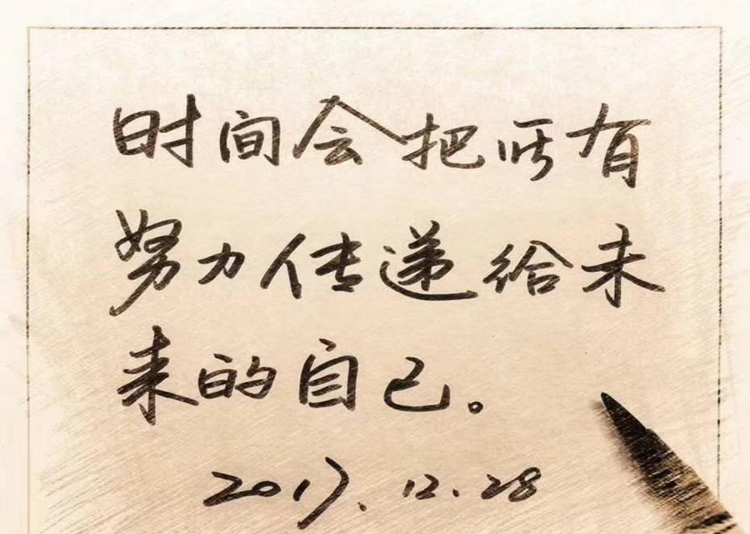 时间会把所有
努力传递给未
来的自己。
2017.12.28